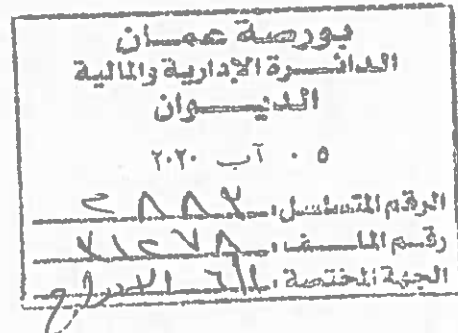 بورصة عمان
الدائرة الإدارية والمالية
الديوان
٠٥ آب ٢٠٢٠
الرقم المتسلسل: ٢٨٨٣
رقم الملف: ٧١٢٧٨
الجهة المختصة: